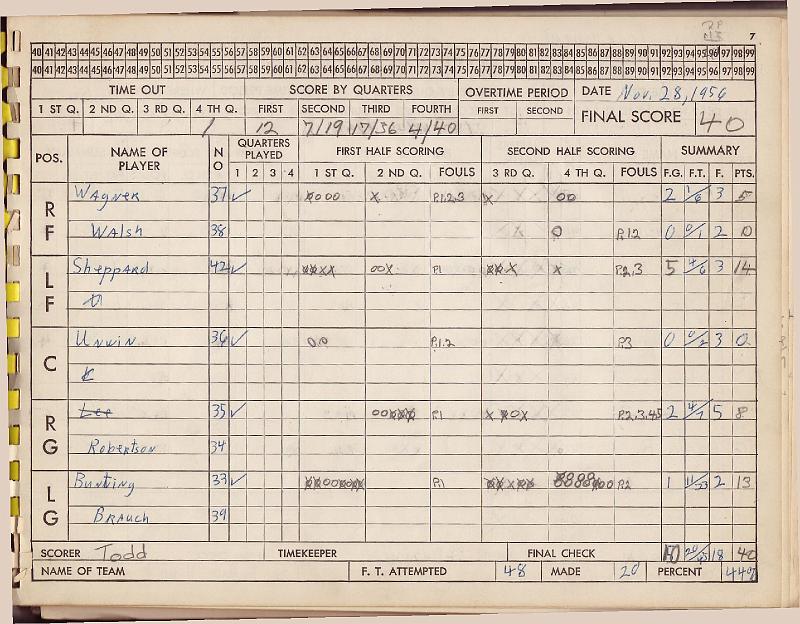 7
40 41 42 43 44 45 46 47 48 49 50 51 52 53 54 55 56 57 58 59 60 61 62 63 64 65 66 67 68 69 70 71 72 73 74 75 76 77 78 79 80 81 82 83 84 85 86 87 88 89 90 91 92 93 94 95 96 97 98 99
40 41 42 43 44 45 46 47 48 49 50 51 52 53 54 55 56 57 58 59 60 61 62 63 64 65 66 67 68 69 70 71 72 73 74 75 76 77 78 79 80 81 82 83 84 85 86 87 88 89 90 91 92 93 94 95 96 97 98 99
TIME OUT SCORE BY QUARTERS OVERTIME PERIOD DATE Nov. 28, 1956
1 ST Q. 2 ND Q. 3 RD Q. 4 TH Q. FIRST SECOND THIRD FOURTH FIRST SECOND FINAL SCORE 40
1 12 7/19 17/36 4/40
POS. NAME OF PLAYER NO QUARTERS PLAYED FIRST HALF SCORING SECOND HALF SCORING SUMMARY
1 2 3 4 1 ST Q. 2 ND Q. FOULS 3 RD Q. 4 TH Q. FOULS F.G. F.T. F. PTS.
RF Wagner 37 ✓ X000 X P.1,2,3 X 00 2 1/6 3 5
Walsh 38 0 P.1,2 0 0/1 2 0
LF Sheppard 42 ✓ 00X P1 X P.2,3 5 4/6 3 14
C Unwin 36 ✓ 00 P.1.2 P.3 0 0/2 3 0
RG Lee 35 ✓ P.1 P.2,3,4,5 2 4/7 5 8
Robertson 34
LG Bunting 33 ✓ P.1 P.2 1 2 13
Brauch 39
SCORER Todd TIMEKEEPER FINAL CHECK 10 18 40
NAME OF TEAM F. T. ATTEMPTED 48 MADE 20 PERCENT 44%